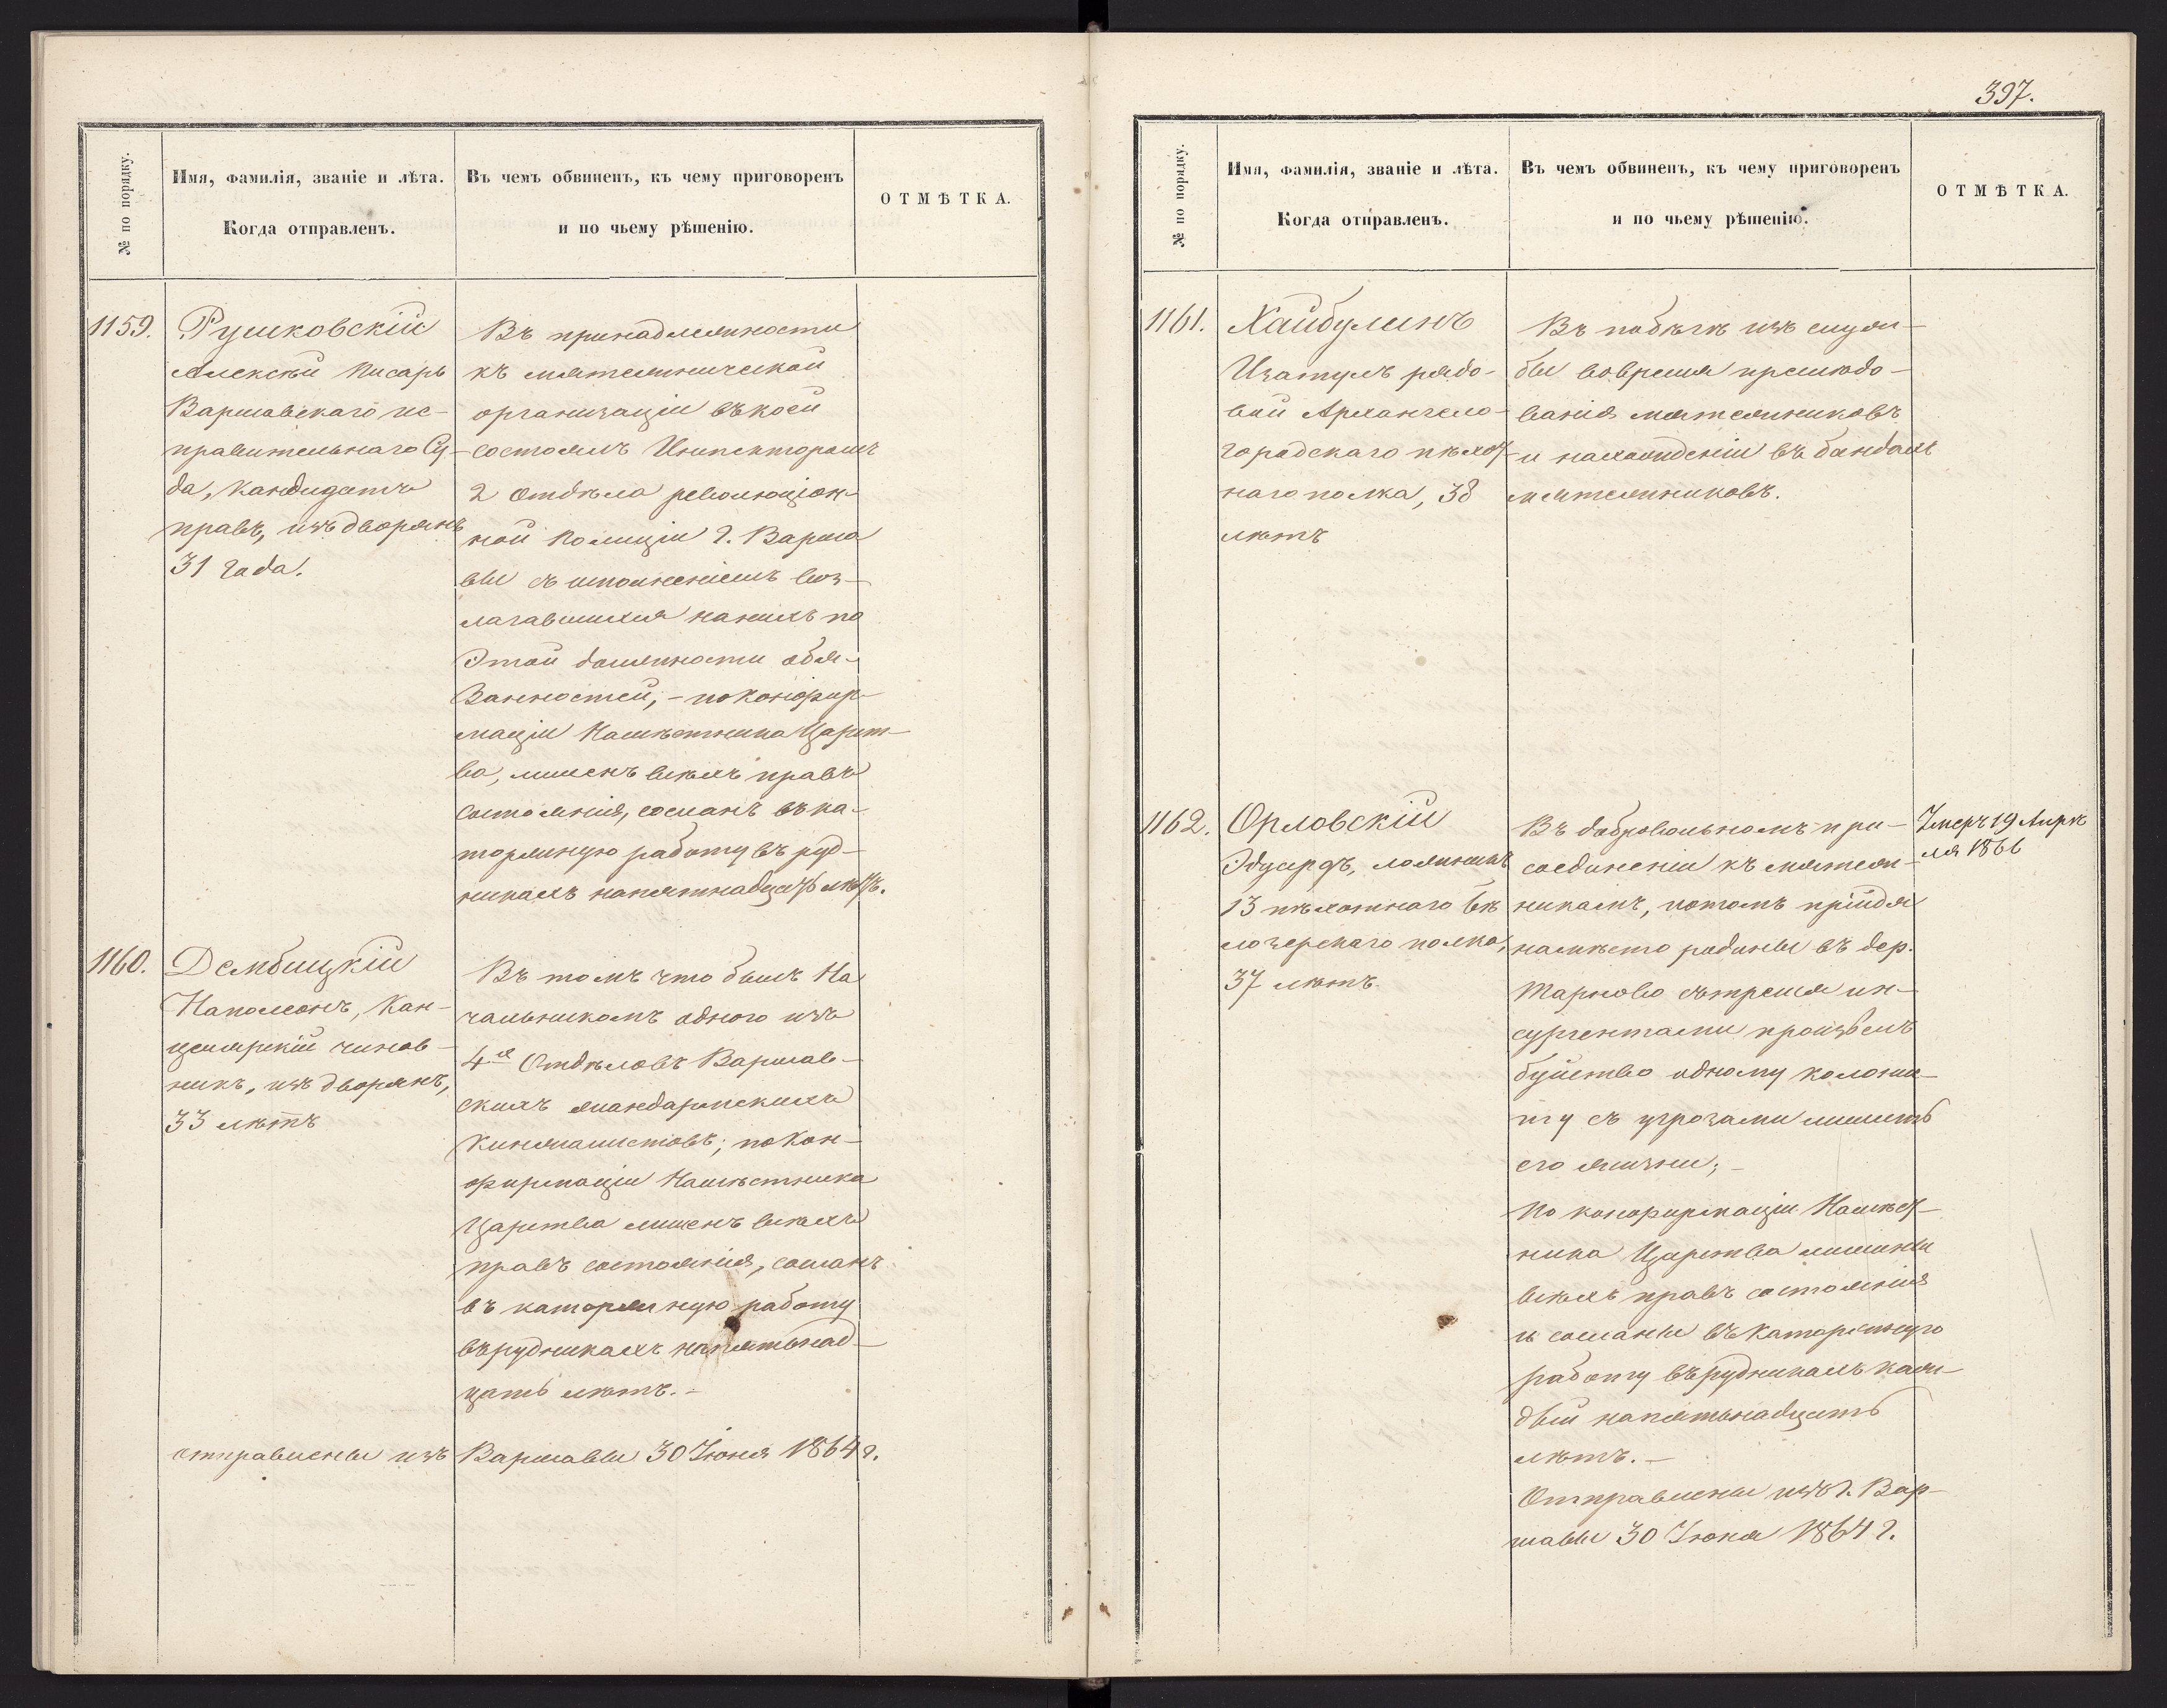 № по порядку.
Имя, фамилія, званіе и лѣта.
Когда отправленъ.
Въ чемъ обвиненъ, къ чему приговоренъ
и по чьему рѣшенію.
ОТМѢТКА.
1159.
Рушковскій
Алексѣй Писарь
Варшавскаго ис-
правительнаго Су-
да, кандидатъ
правъ, изъ дворянъ
31 года.
Въ принадлежности
къ мятежнической
организаціи въ коей
состоялъ Инспекторомъ
2 Отдѣла революціон-
ной полиціи г. Варша
вы съ исполненіемъ воз-
лагавшихся на нихъ по
Этой должности обя-
занностей, - по конфир-
маціи Намѣстника Царст-
ва, лишенъ всѣхъ правъ
состоянія, сосланъ въ ка-
торжную работу въ руд-
никахъ на пятнадцать лѣтъ.
1160.
Дембицкій
Наполеонъ, Кан-
целярскій чинов-
никъ, изъ дворянъ,
33 лѣтъ
Въ томъ что былъ На
чальникомъ одного изъ
4х Отдѣловъ Варшав-
скихъ жандармскихъ
кинжалистовъ; по кон-
фирмаціи Намѣстника
Царства лишенъ всѣхъ
правъ состоянія, сосланъ
въ каторжную работу
въ рудникахъ на пятьнад-
цать лѣтъ. -
отправлены изъ Варшавы 30 Іюня 1864 г.
397.
№ по порядку.
Имя, фамилія, званіе и лѣта.
Когда отправленъ.
Въ чемъ обвиненъ, къ чему приговоренъ
и по чьему рѣшенію.
ОТМѢТКА.
1161.
Хайбулинъ
Изатулъ рядо-
вой Архангело-
городскаго пѣхот-
наго полка, 38
лѣтъ
Въ побѣгѣ изъ служ-
бы вовремя преслѣдо-
ванія мятежниковъ
и нахожденіи въ бандахъ
мятежниковъ.
1162.
Орловскій
Эдуардъ,
13 пѣхотнаго Бѣ
лозерскаго полка,
37 лѣтъ.
Въ добровольномъ при-
соединеніи къ мятеж-
никамъ, потомъ прійдя
на мѣсто родины въ дер.
Тарново съ тремя ин-
сургентами произвелъ
буйство одному колони-
сту съ угрозами лишить
его жизни; -
По конфирмаціи Намѣст-
ника Царства лишены
всѣхъ правъ состоянія
и сосланы въ каторжную
работу въ рудникахъ каж-
дый на пятьнадцать
лѣтъ. -
Отправлены изъ г. Вар-
шавы 30 Іюня 1864 г.
Умеръ 19 Апрѣ
ля 1866